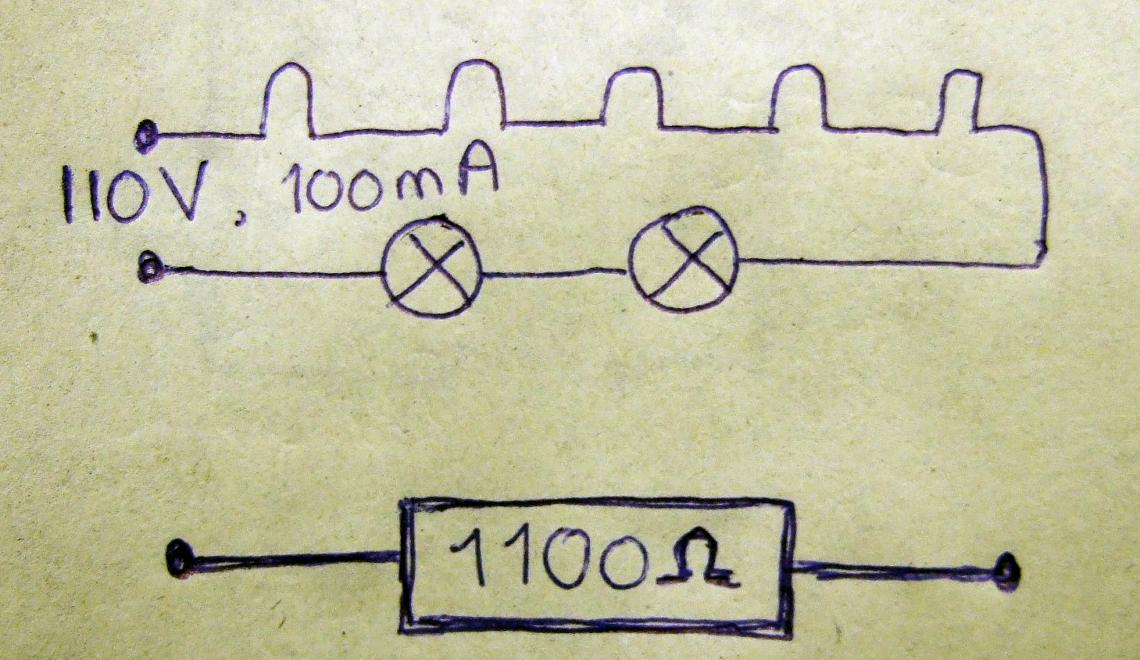 110V, 100mA
1100Ω